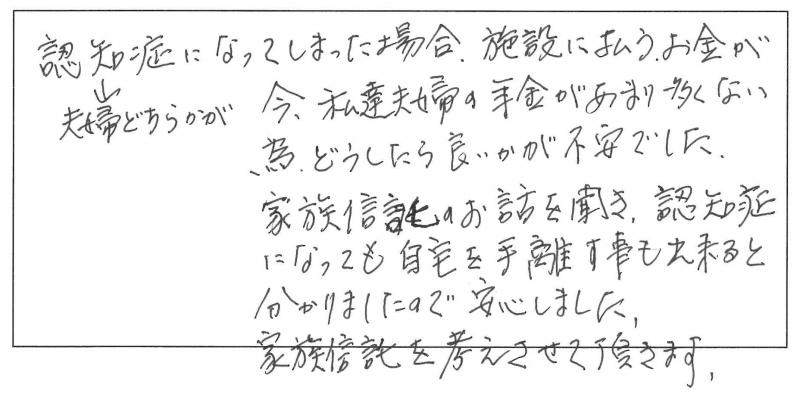 認知症になってしまった場合、施設に払うお金が
夫婦どちらかが
今、私達夫婦の年金があまり多くない
為、どうしたら良いかが不安でした。
家族信託のお話を聞き、認知症
になっても自宅を手離す事も出来ると
分かりましたので安心しました。
家族信託を考えさせて頂きます。